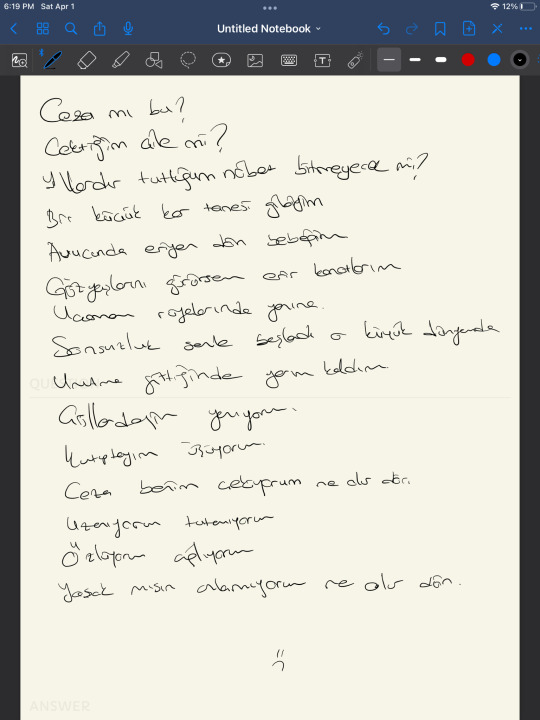 6:19 PM Sat Apr 1 12%
Untitled Notebook
Ceza mı bu?
Çektiğim çile mi?
Yıllardır tuttuğum nöbet bitmeyecek mi?
Bir küçük kar tanesi gibiyim
Avucunda eriyen dön bebeğim
Gözyaşlarını görürsem erir kanatlarım
Uçamam rüyalarında yanına.
Sonsuzluk senle başladı o küçük dünyanda
Unutma gittiğinde yarım kaldım
Çöllerdeyim yanıyorum.
Kutuptayım üşüyorum.
Ceza benim çekiyorum ne olur dön.
Uzanıyorum tutamıyorum
Özlüyorum ağlıyorum
Yasak mısın anlamıyorum ne olur dön.
ANSWER